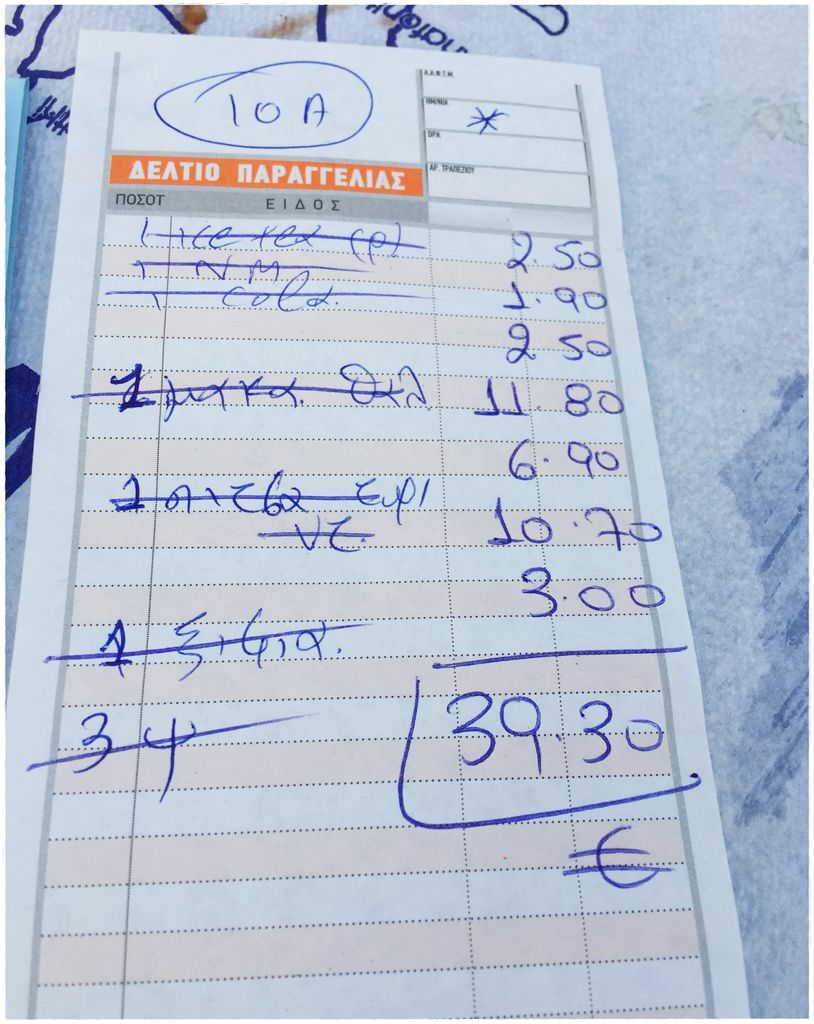 10 A
Α.Α.Φ.Τ.Μ.
ΗΜ/ΝΙΑ
ΩΡΑ
ΑΡ. ΤΡΑΠΕΖΙΟΥ
ΔΕΛΤΙΟ ΠΑΡΑΓΓΕΛΙΑΣ
ΠΟΣΟΤ ΕΙΔΟΣ
1 ice tea (ρ) 2.50
1 N.M 1.90
1 cola. 2 50
1 μακα. θαλ 11.80
6.90
1 πιτσα τυρι 10.70
ντ. 3.00
1 ξιφια.
3 ψ 39.30
€